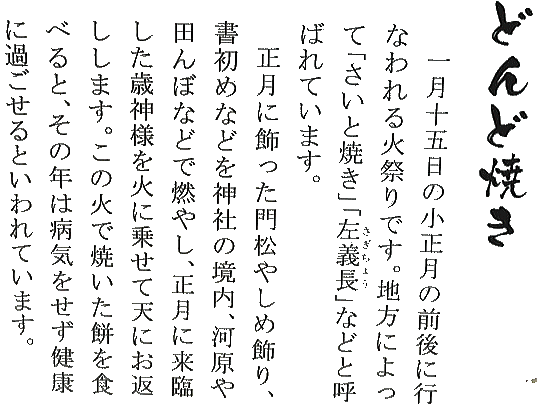 どんど焼き
一月十五日の小正月の前後に行
なわれる火祭りです。地方によっ
て「さいと焼き」「左義長」などと呼
さぎちょう
ばれています。
正月に飾った門松やしめ飾り、
書初めなどを神社の境内、河原や
田んぼなどで燃やし、正月に来臨
した歳神様を火に乗せて天にお返
しします。この火で焼いた餅を食
べると、その年は病気をせず健康
に過ごせるといわれています。